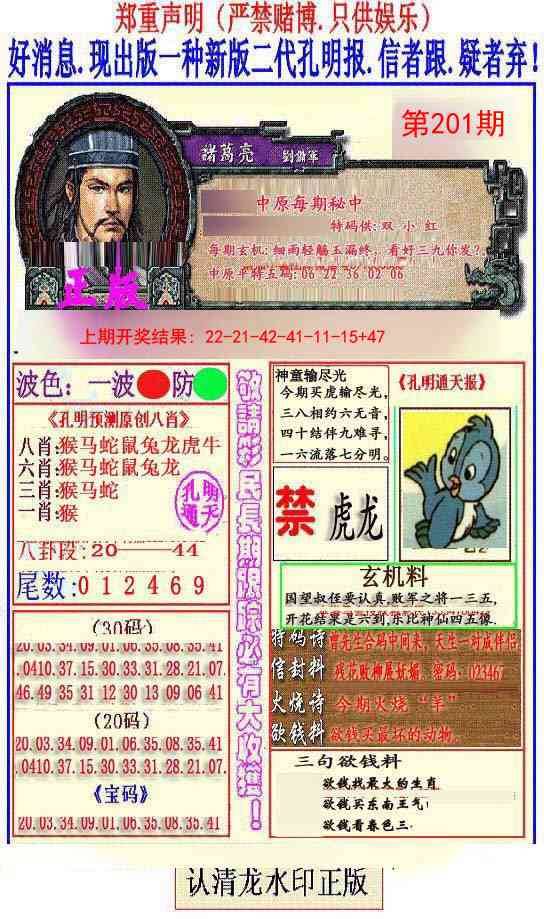 郑重声明（严禁赌博.只供娱乐）
好消息.现出版一种新版二代孔明报.信者跟.疑者弃!
第201期
諸葛亮 劉備軍
中原每期秘中
特码供: 双 小 红
每期玄机: 细雨轻觞玉漏终，看好三九你发?
中原平特五码: 06 22 36 02 06
正版
上期开奖结果：22-21-42-41-11-15+47
波色：一波 防
《孔明预测原创八肖》
八肖:猴马蛇鼠兔龙虎牛
六肖:猴马蛇鼠兔龙
三肖:猴马蛇
一肖:猴
孔明通天
八卦段:20——44
尾数:012469
(30码)
20.03.34.09.01.06.35.08.35.41
.0410.37.15.30.33.31.28.21.07.
46.49.35.31.12.30.13.09.06.41
(20码)
20.03.34.09.01.06.35.08.35.41
.0410.37.15.30.33.31.28.21.07.
《宝码》
20.03.34.09.01.06.35.08.35.41
敬請彩民長期跟踪必有大收獲！
神童输尽光
今期买虎输尽光,
三八相约六无音,
四十结伴九难寻,
一六流落七分明。
《孔明通天报》
禁 虎龙
玄机料
国望叔侄要认真,败军之将一三五,
开花结果是六到,乐比神仙四五傻.
特码诗 曾先生合码中间来，天生一对成伴侣
信封料 残花败柳展妩媚。密码：023467
火烧诗 今期火烧“羊”
欲钱料 欲钱买最坏的动物。
三句欲钱料
欲钱找最大的生肖
欲钱买东南王气!
欲钱看春色三.
认清龙水印正版